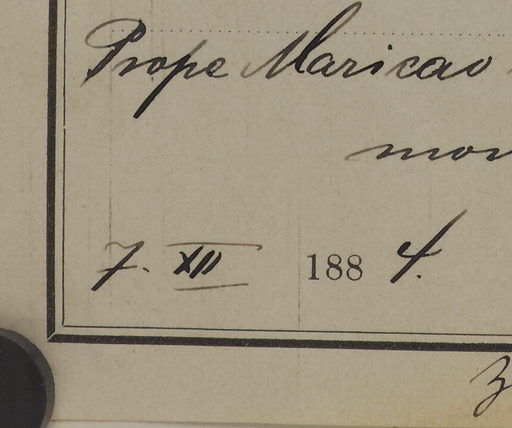 Prope Maricao
7. XII 1884.